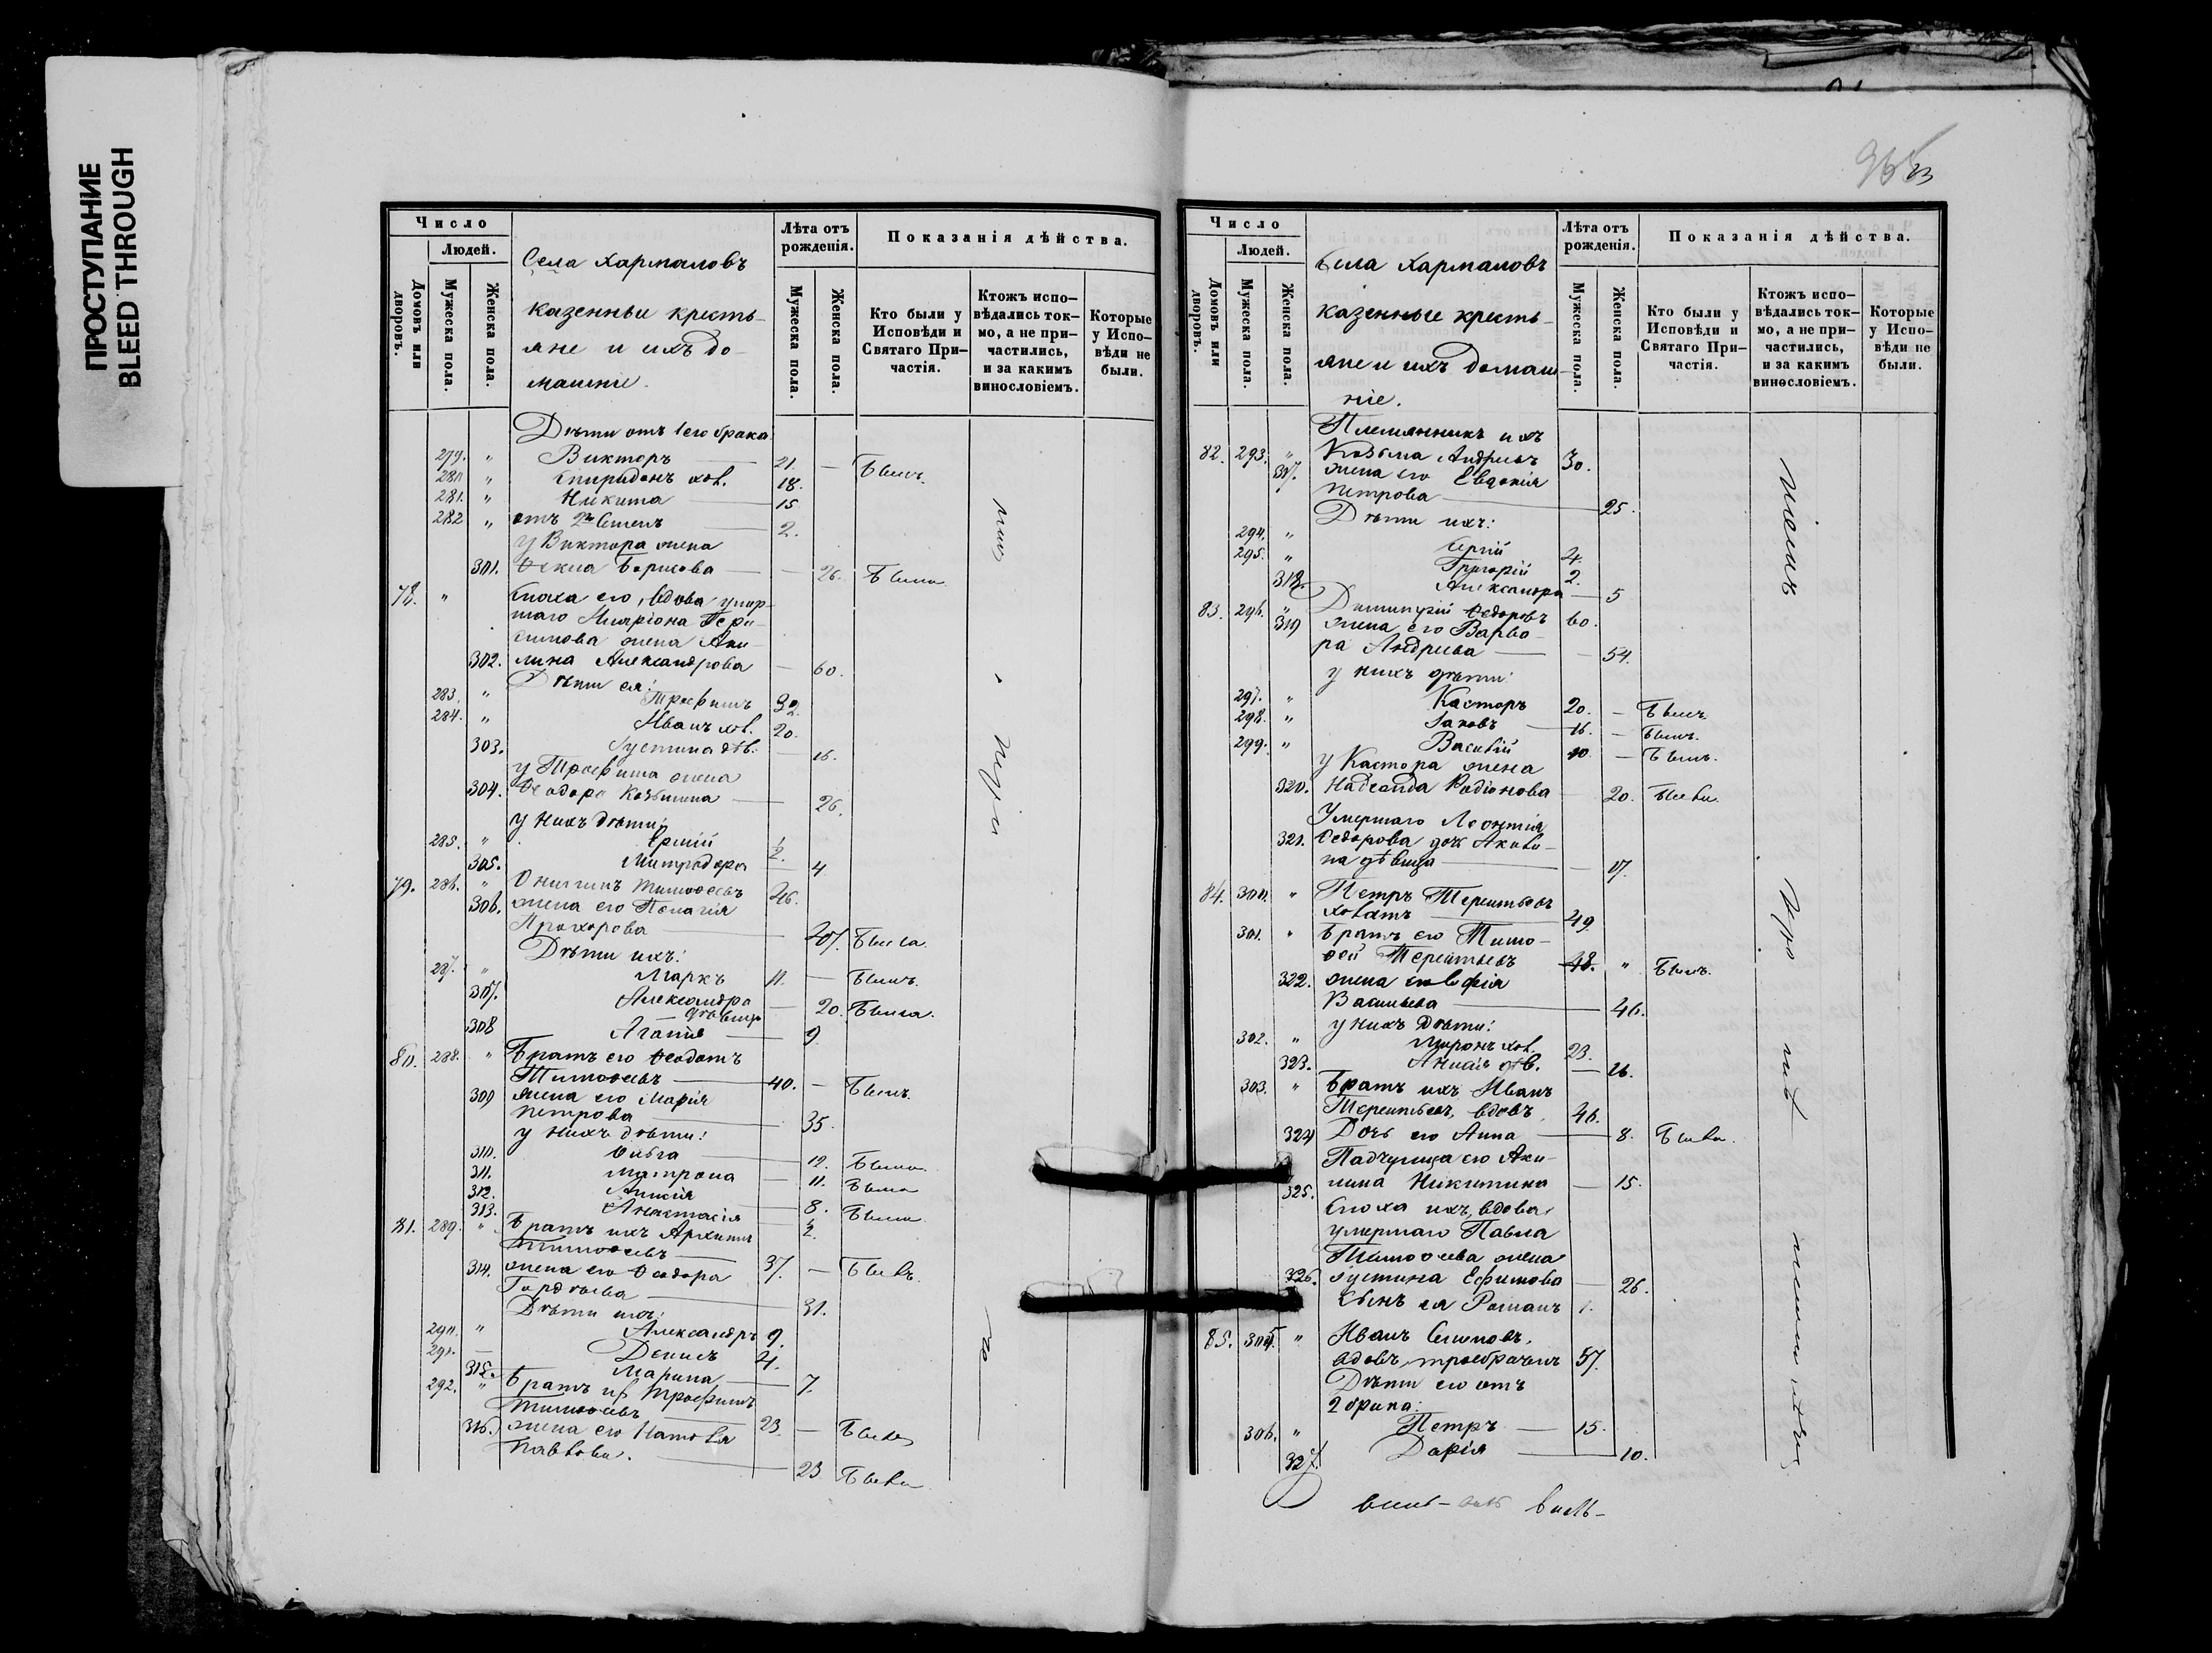 ПРОСТУПАНИЕ
BLEED THROUGH
Число
Людей.
Домовъ или дворовъ.
Мужеска пола.
Женска пола.
Села Харталовъ
казенныи кресть-
яне и ихъ до-
машніе.
Лѣта отъ рожденія.
Мужеска пола.
Женска пола.
Показанія дѣйства.
Кто были у Исповѣди и Святаго При-частія.
Ктожъ испо-вѣдались ток-мо, а не при-частились, и за какимъ винословіемъ.
Которые у Испо-вѣди не были.
Дѣти отъ 1 его брака
279. " Викторъ 21. — Былъ.
280 " Спиридонъ хол. 18.
281. " Никита 15
282 " отъ 2го Семенъ 2.
у Виктора жена
301. Ѳекла Борисова — 26. Была
78. " Сноха его, вдова умер-
шаго Иларіона Гера-
симова жена Аки-
302. лина Александрова — 60.
Дѣти ея:
283. " Трофимъ 32.
284. " Иванъ хол. 20.
303. Іустина дѣв. — 16.
у Трофима жена
304. Ѳеодора Козьмина — 26.
у нихъ дѣти:
285. " Ермій ½.
305. Митродора — 4
79. 286. " Онисимъ Тимоѳеевъ 46.
306. жена его Пелагія
Прохорова 47. Была.
Дѣти ихъ:
287. " Маркъ 11. — Былъ.
307. Александра
дѣвица — 20. Была.
308 Агапія — 9
80. 288. " Братъ его Ѳеодотъ
Тимоѳеевъ 40. — Былъ.
309 жена его Марія
Петрова 35.
у нихъ дѣти:
310. Ольга 12. Была
311. Матрона — 11. Была
312. Анисія 8. Была
313. Анастасія ½.
81. 289. " Братъ ихъ Архипъ
Тимоѳеевъ 37. — Былъ.
314. жена его Ѳеодора
Гордѣева 31.
Дѣти ихъ:
290. " Александръ 9.
291. — Денисъ 4.
315. Марина 7.
292. " Братъ их Трофимъ
Тимоѳеевъ 23. — Былъ
316. жена его Наталья
Павлова. 23 Была
Число
Людей.
Домовъ или дворовъ.
Мужеска пола.
Женска пола.
Села Харталовъ
казенные кресть-
яне и ихъ домаш-
ніе.
Лѣта отъ рожденія.
Мужеска пола.
Женска пола.
Показанія дѣйства.
Кто были у Исповѣди и Святаго При-частія.
Ктожъ испо-вѣдались ток-мо, а не при-частились, и за какимъ винословіемъ.
Которые у Испо-вѣди не были.
Племянникъ ихъ
82. 293. " Козьма Андреевъ 30.
317. жена его Евдокія
Петрова 25.
Дѣти ихъ:
294. " Сергій 4.
295. " Григорій 2.
318. Александра — 5
83. 296. " Димитрій Ѳедоровъ 60.
319 жена его Варва-
ра Андреева — 54.
у нихъ дѣти:
297. " Касторъ 20. — Былъ.
298. " Іаковъ 16. — Былъ.
299. " Василій 10. — Былъ.
у Кастора жена
320. Надежда Родіонова — 20. Была.
Умершаго Леонтія
321. Ѳедорова дочь Акили-
на дѣвица — 17.
84. 300. " Петръ Терентьевъ
холостъ 49
301. " Братъ его Тимо-
ѳей Терентьевъ 48. " Былъ.
322. жена его Софія
Васильева 46.
у нихъ дѣти:
302. " Миронъ хол. 23.
323. Анисія дѣв. — 16.
303. " Братъ ихъ Иванъ
Терентьевъ, вдовъ, 46.
324 Дочь его Анна 8. Была.
Падчерица его Аки-
325. лина Никитина — 15.
Сноха ихъ, вдова,
умершаго Павла
Тимоѳеева жена
326. Іустина Ефимова — 26.
Сынъ ея Романъ 1.
85. 305. " Иванъ Семеновъ,
вдовъ, троебрачный 57.
Дѣти его отъ
2 брака:
306. " Петръ 15.
327. Дарія 10.